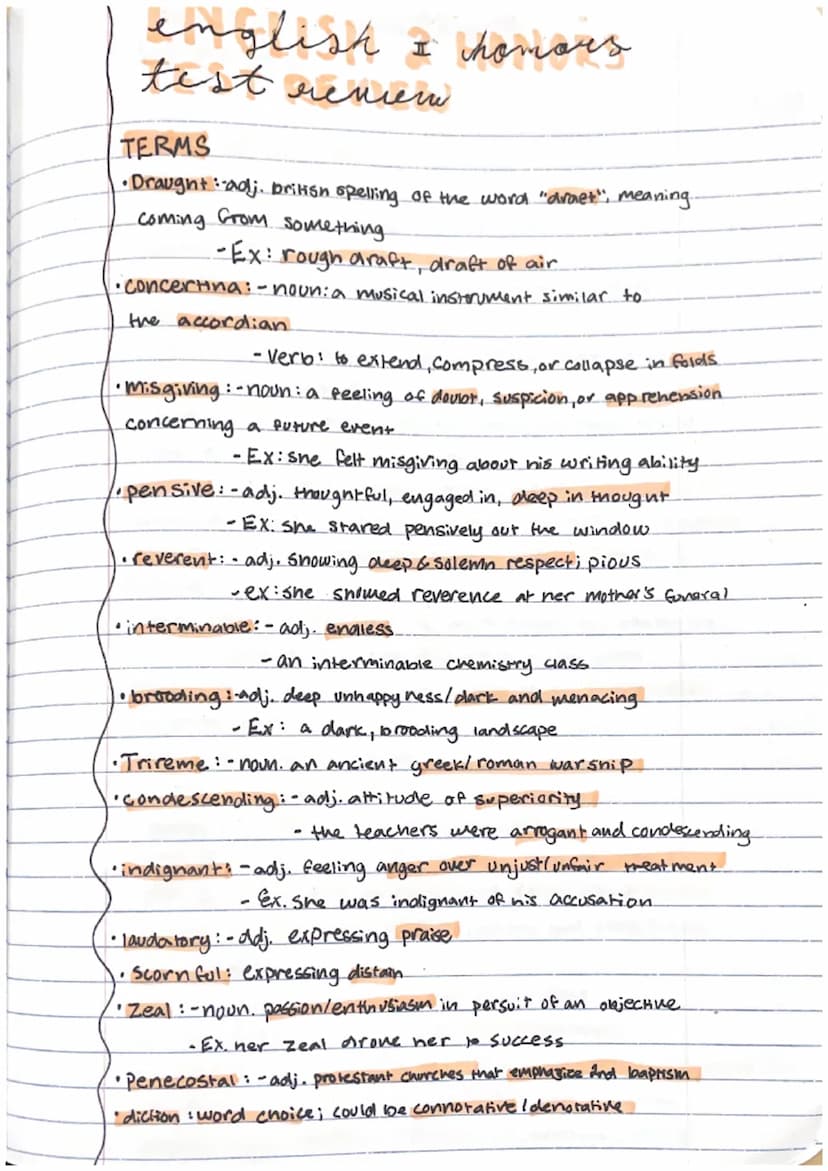 english I honors
ENGLISH 2 HONORS
test review
TEST REVIEW
TERMS
• Draught: -adj. british spelling of the word "draet", meaning
coming from something
- Ex: rough draft, draft of air
• concertina: - noun: a musical instrument similar to
the accordian
- Verb: to extend, compress, or collapse in folds
• misgiving: - noun: a feeling of doubt, suspicion, or apprehension
concerning a future event
- Ex: she felt misgiving about his writing ability
• pensive: - adj. thoughtful, engaged in, deep in thought
- Ex: she stared pensively out the window
• reverent: - adj. showing deep & solemn respect; pious
- ex: she showed reverence at her mother's funeral
• interminable: - adj. endless
- an interminable chemistry class
• brooding: -adj. deep unhappyness/dark and menacing
- Ex: a dark, brooding landscape
• Trireme: - noun. an ancient greek/roman warship
• condescending: - adj. attitude of superiority
- the teachers were arrogant and condescending
• indignant: - adj. feeling anger over unjust/unfair treatment
- Ex. She was indignant of his accusation
• laudatory: - adj. expressing praise
• Scornful: expressing distain
• Zeal: - noun. passion/enthusiasm in persuit of an objective
- Ex. her zeal drove her to success
• Penecostal: - adj. protestant churches that emphasize 2nd baptism
• diction: word choice; could be connotative/denotative